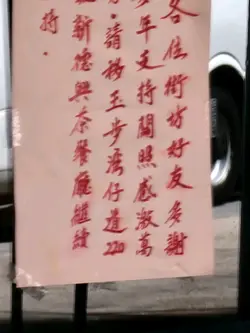 各位街坊好友多謝
多年支持關照感激萬
分．請移玉步灣仔道220
新德興泰餐廳繼續
持．